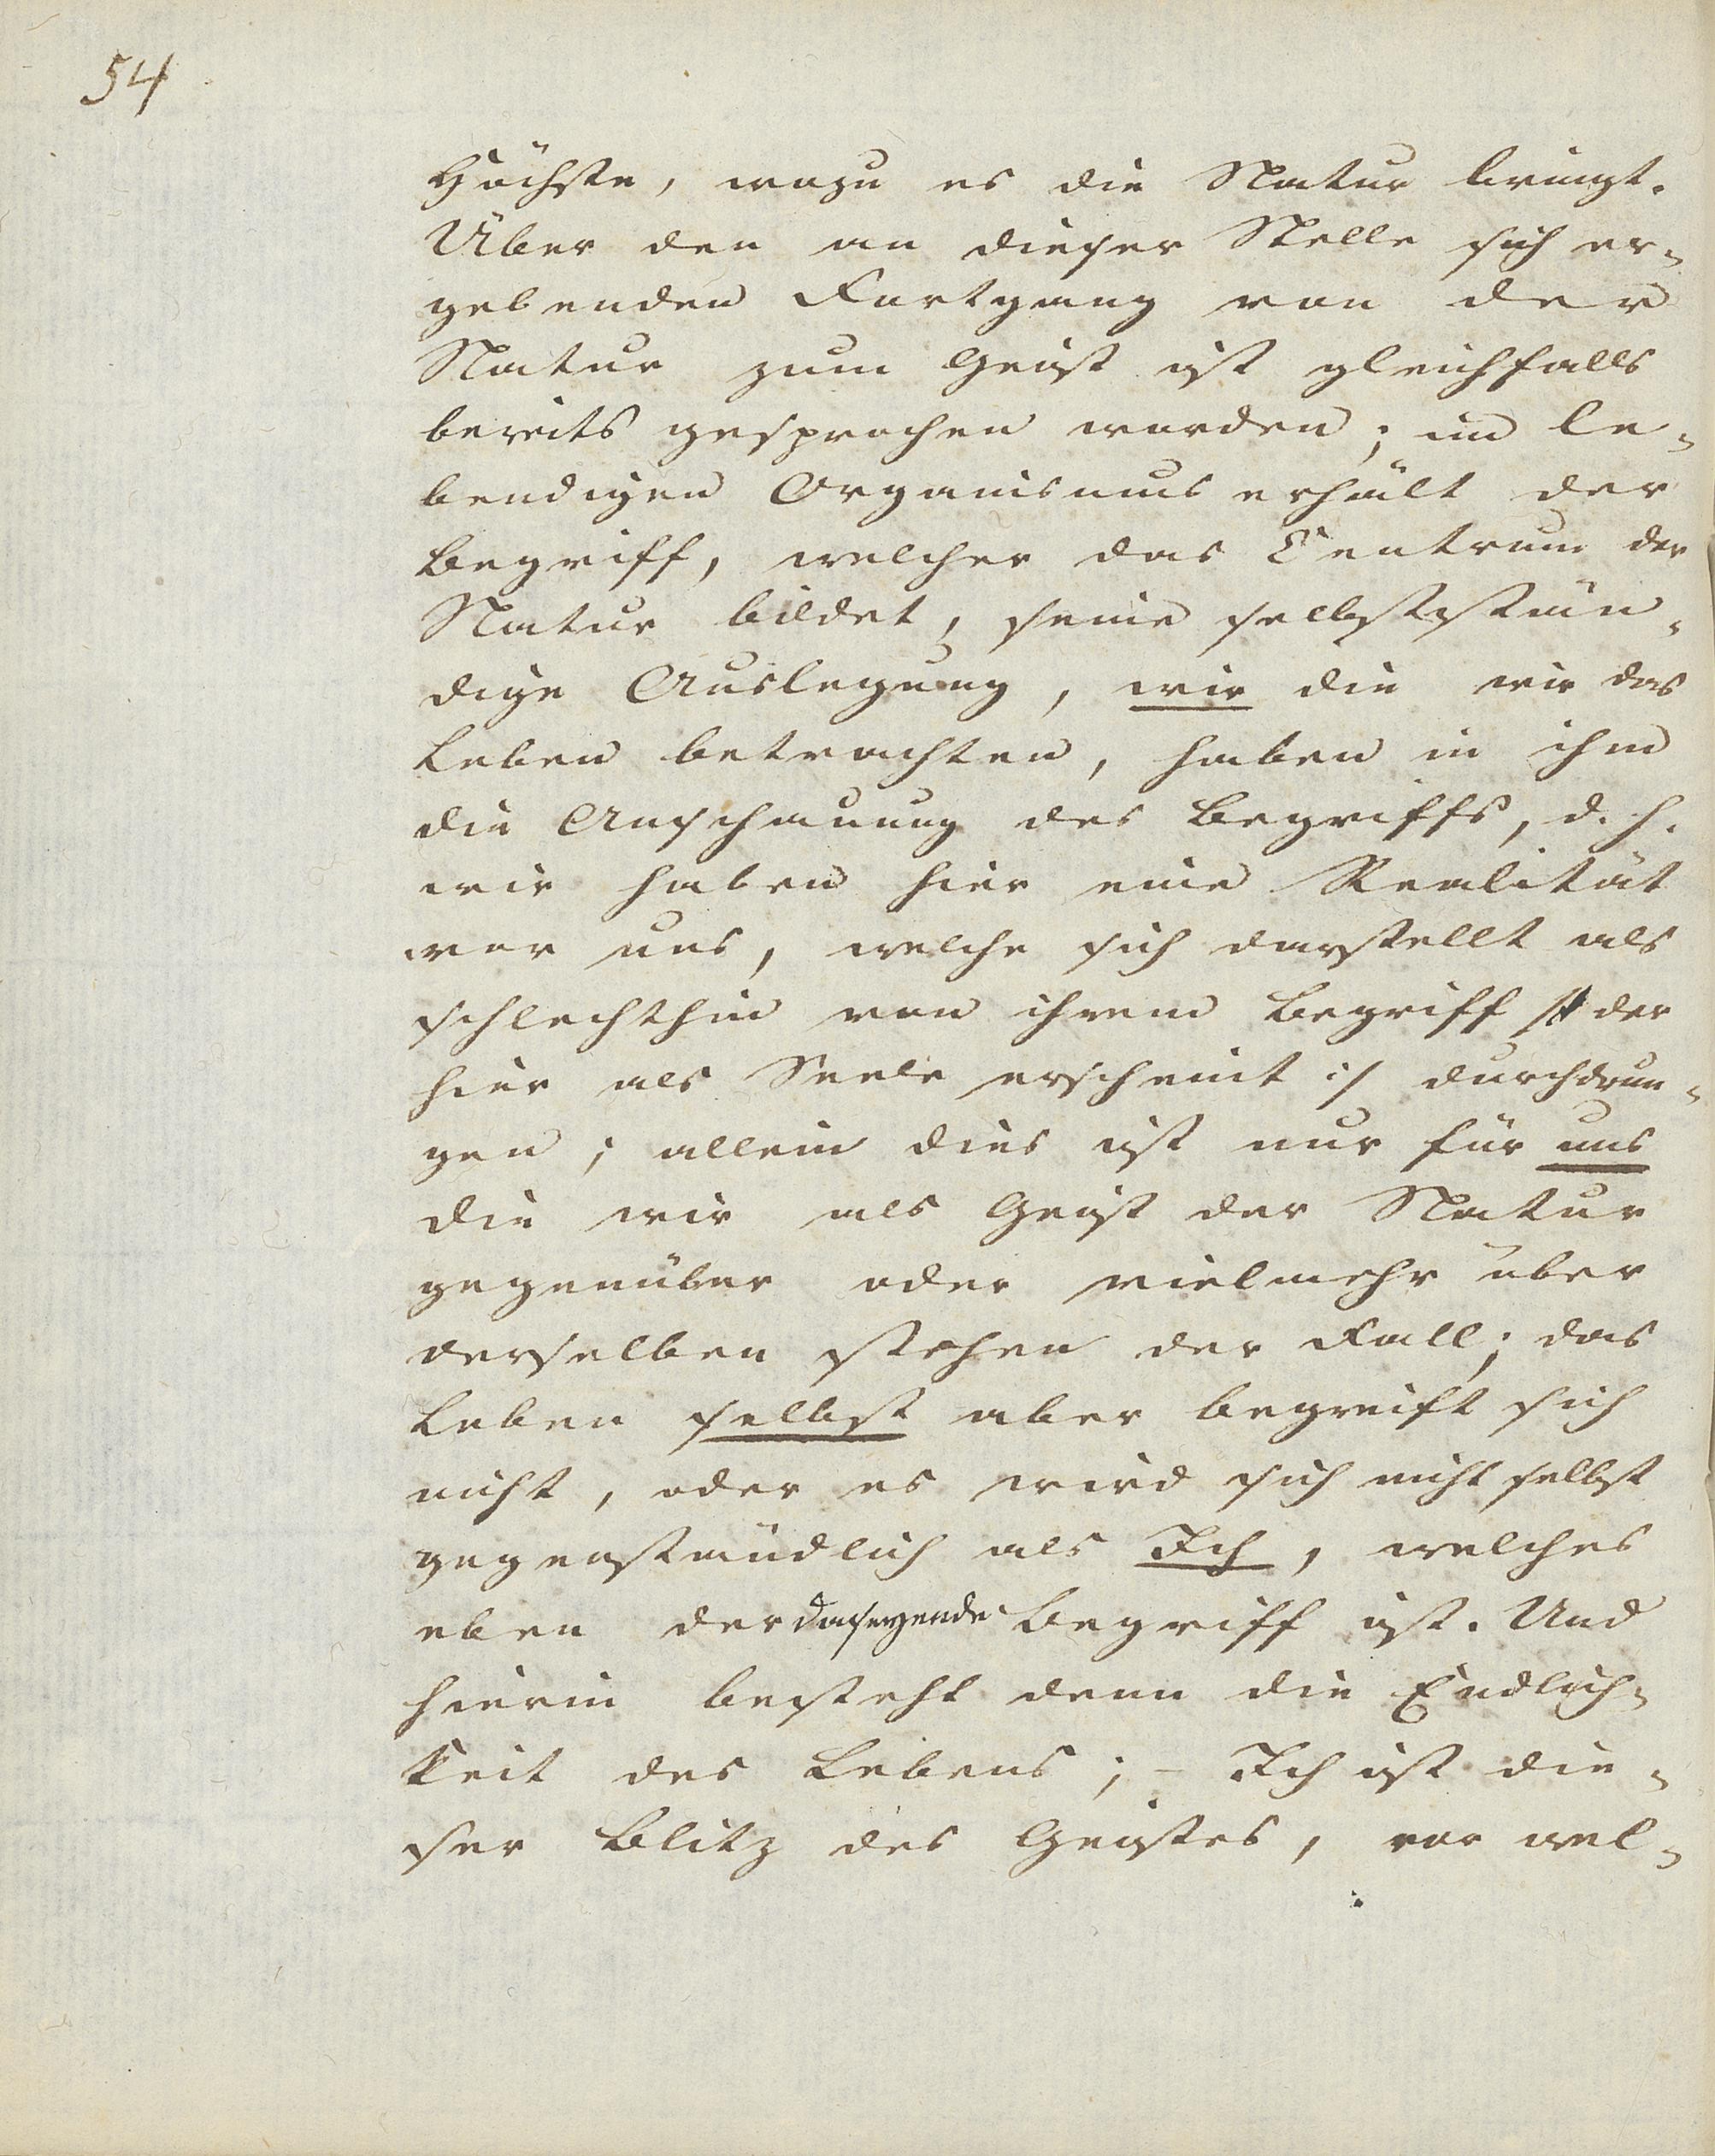 54
Höchste, wozu es die Natur bringt.
Über den an dieser Stelle sich er-
gebenden Fortgang von der
Natur zum Geist ist gleichfalls
bereits gesprochen worden; im le-
bendigen Organismus erhält der
Begriff, welcher das Centrum der
Natur bildet, seine selbststän-
dige Auslegung, wir die wir das
Leben betrachten, haben in ihm
die Anschauung des Begriffs, d. h.
wir haben hier eine Realität
vor uns, welche sich darstellt als
schlechthin von ihrem Begriff /: der
hier als Seele erscheint :/ durchdrun-
gen; allein dies ist nur für uns
die wir als Geist der Natur
gegenüber oder vielmehr über
derselben stehen der Fall; das
Leben selbst aber begreift sich
nicht, oder es wird sich nicht selbst
gegenständlich als Ich, welches
eben der daseyende Begriff ist. Und
hierin besteht denn die Endlich-
keit des Lebens; – Ich ist die-
ser Blitz des Geistes, vor wel-